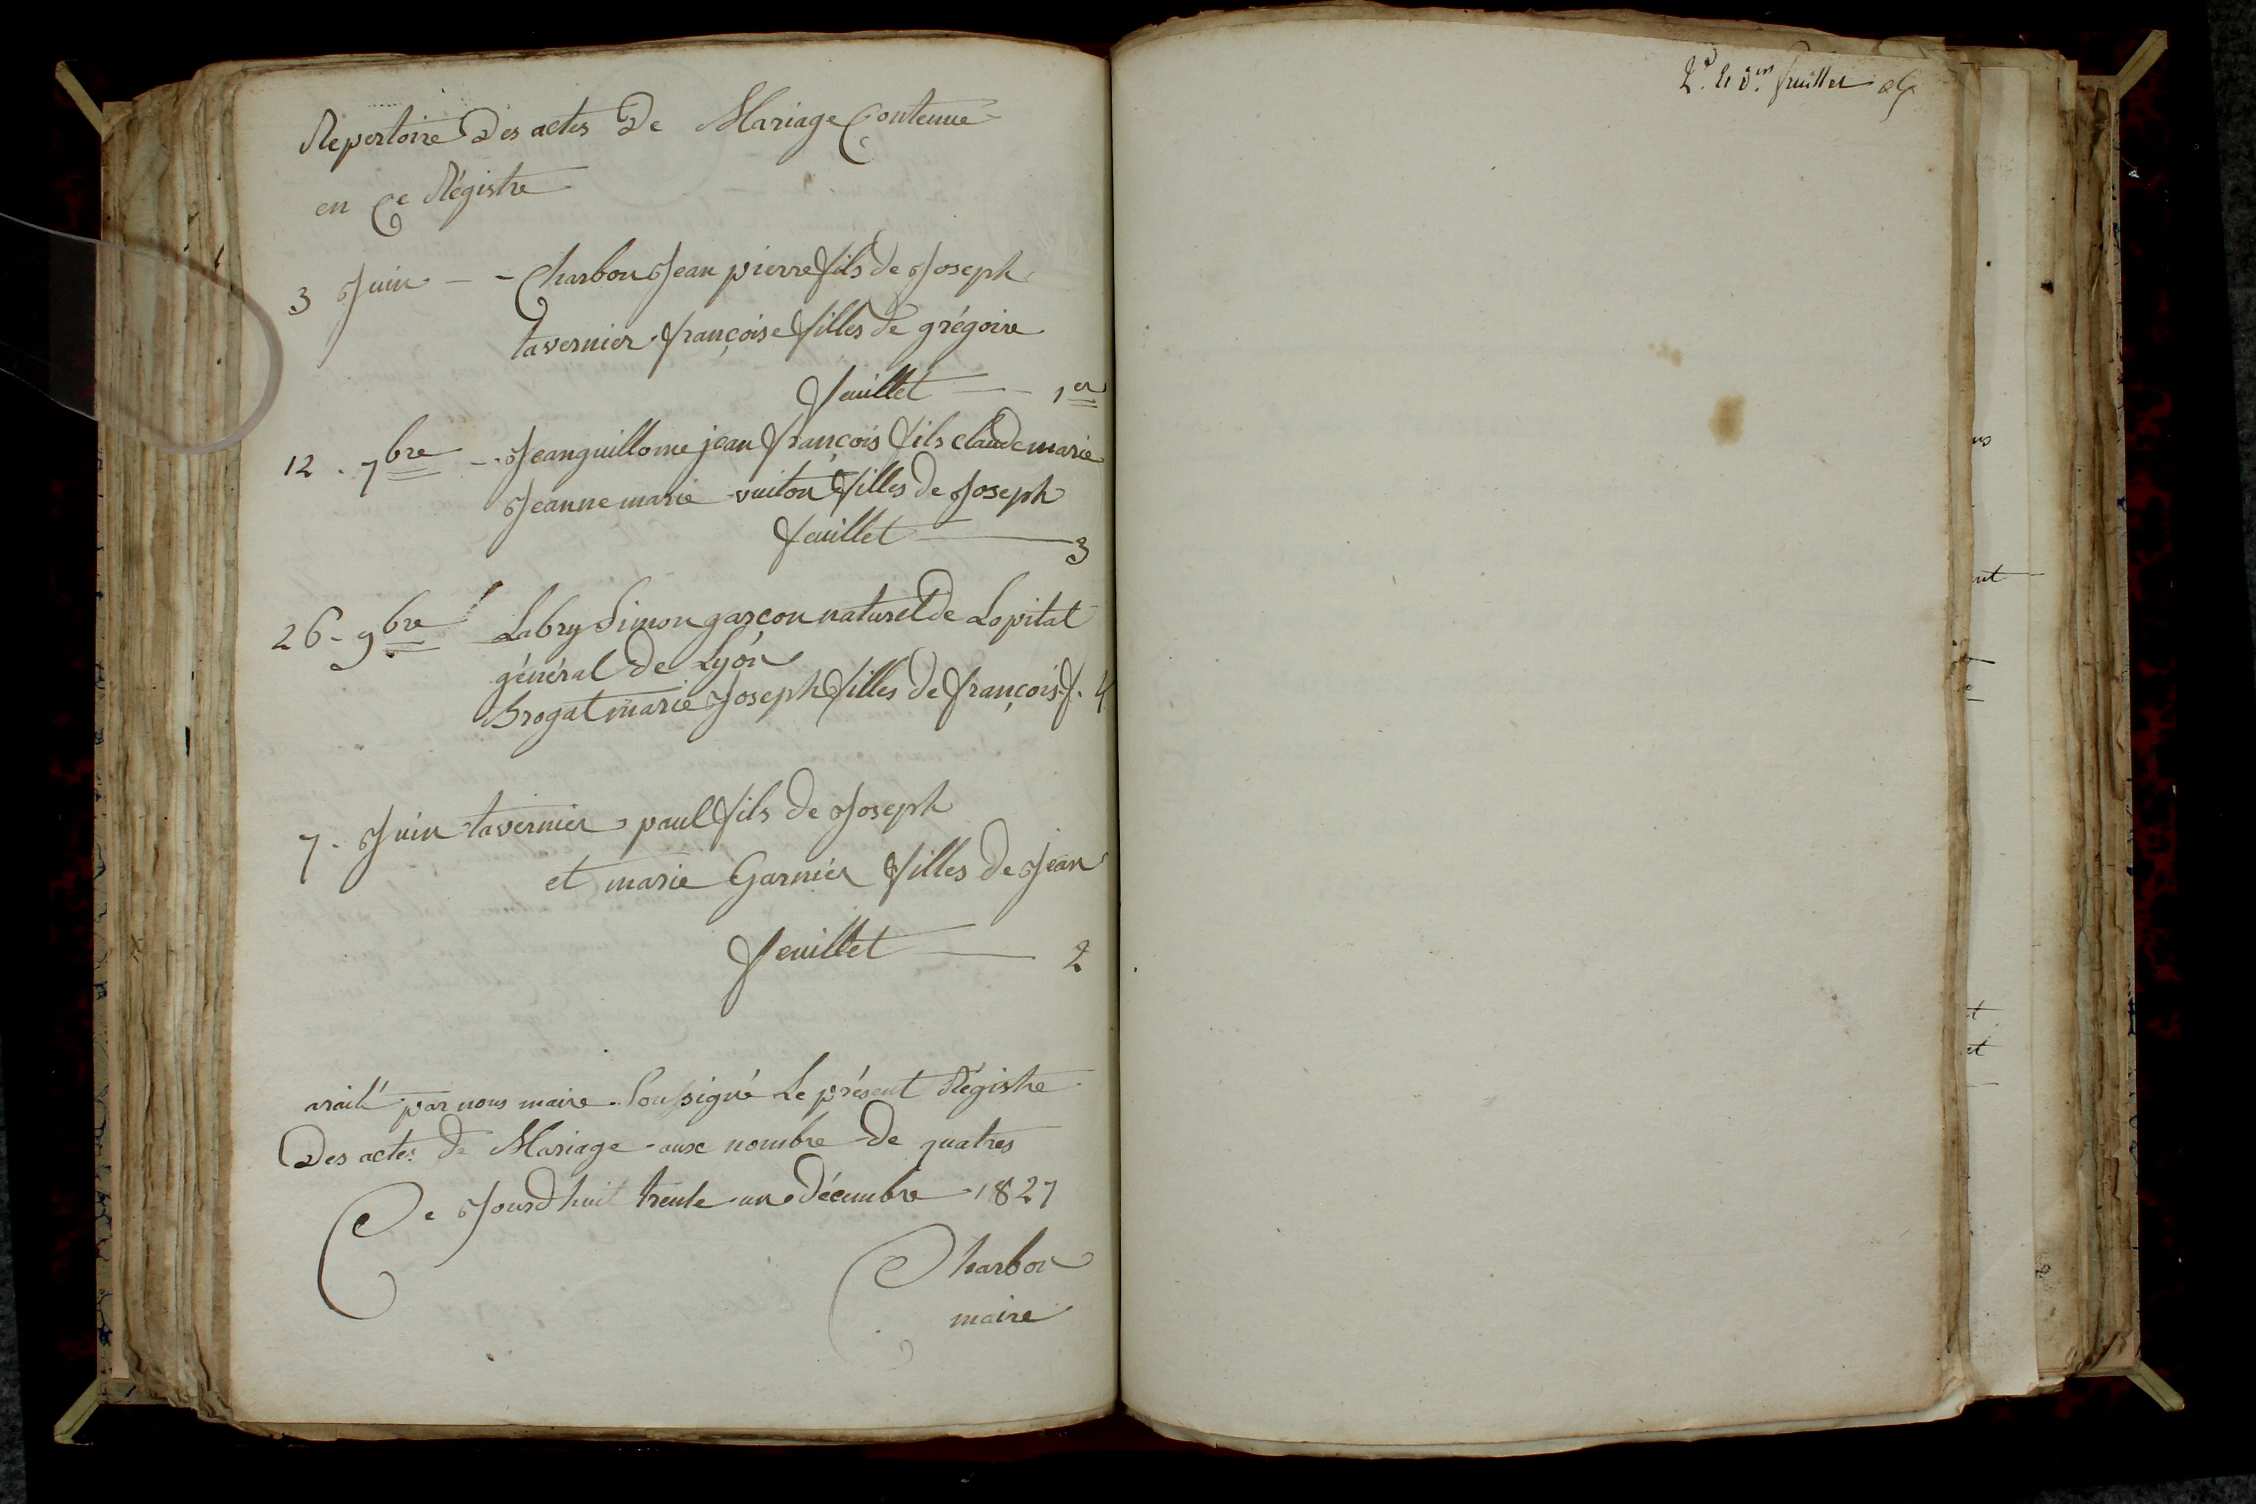 Repertoire Des actes De Mariage Contenue
en Ce Régistre
3 Juin - - Charbon Jean pierre fils de Joseph
tavernier françoise filles de grégoire
feuillet 1er
12. 7bre - Jeanguillome jean françois fils claude marie
Jeanne marie vuiton filles de Joseph
feuillet 3
26 - 9bre Labry Simon garçon naturel de Lopital
général de Lyón
Brogat marie Joseph filles de françois f. 4
7. Juin tavernier paul fils de Joseph
et marie Garnier filles de Jean
feuillet 2
par nous maire Soussigné Le présent Régistre
Des actes de Mariage aux nombre de quatres
Ce Jourd huit trente un décembre 1827
Charbon
maire
feuillet